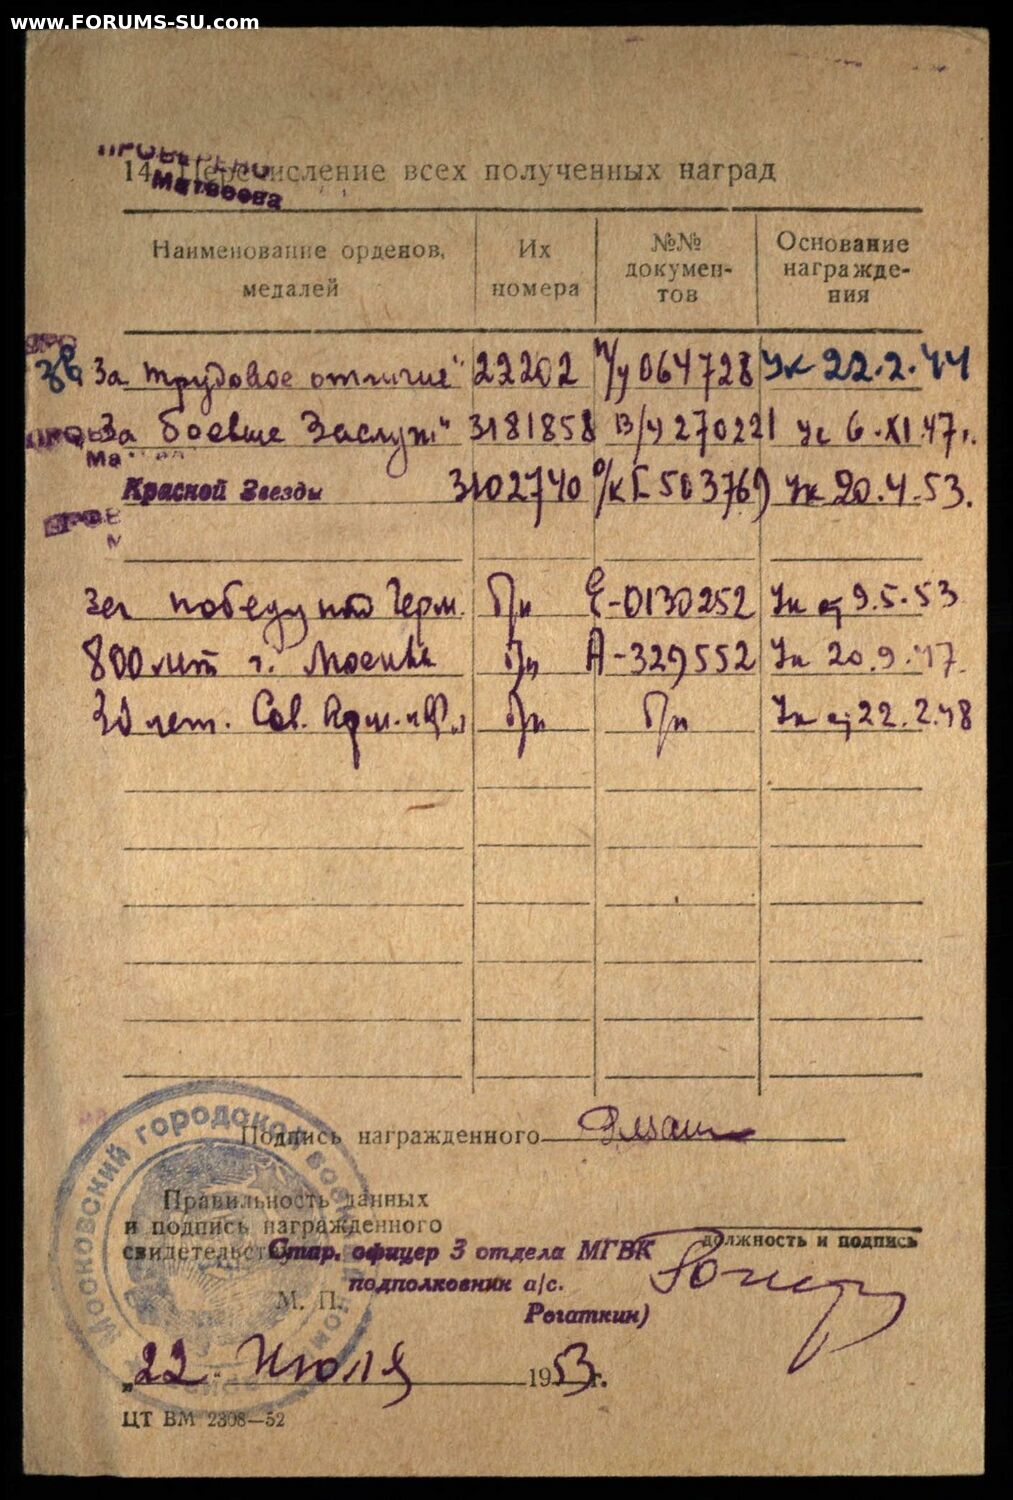 www.FORUMS-SU.com
ПРОВЕРЕНО
Матвеева
14. Перечисление всех полученных наград
Наименование орденов, медалей
Их номера
№№ докумен-
тов
Основание
награжде-
ния
За трудовое отличие" 22202 064728 Ук 22.2.44
За боевые Заслуж" 3181858 270221 Ук 6.XI.47г.
Красной Звезды 3102740 503769 Ук 20.4.53.
За победу над Герм. Е-0130252 Ук от 9.5.53
800 лет г. Москвы А-329552 Ук 20.9.47.
30 лет. Сов. Арм. и Ф. Ук от 22.2.48
Подпись награжденного
Правильность данных
и подпись награжденного
свидетельст
должность и подпись
Стар. офицер 3 отдела МГВК
подполковник а/с.
М. П.
Рогаткин)
„22. Июля 1953 г.
ЦТ ВМ 2308—52
Московский городской